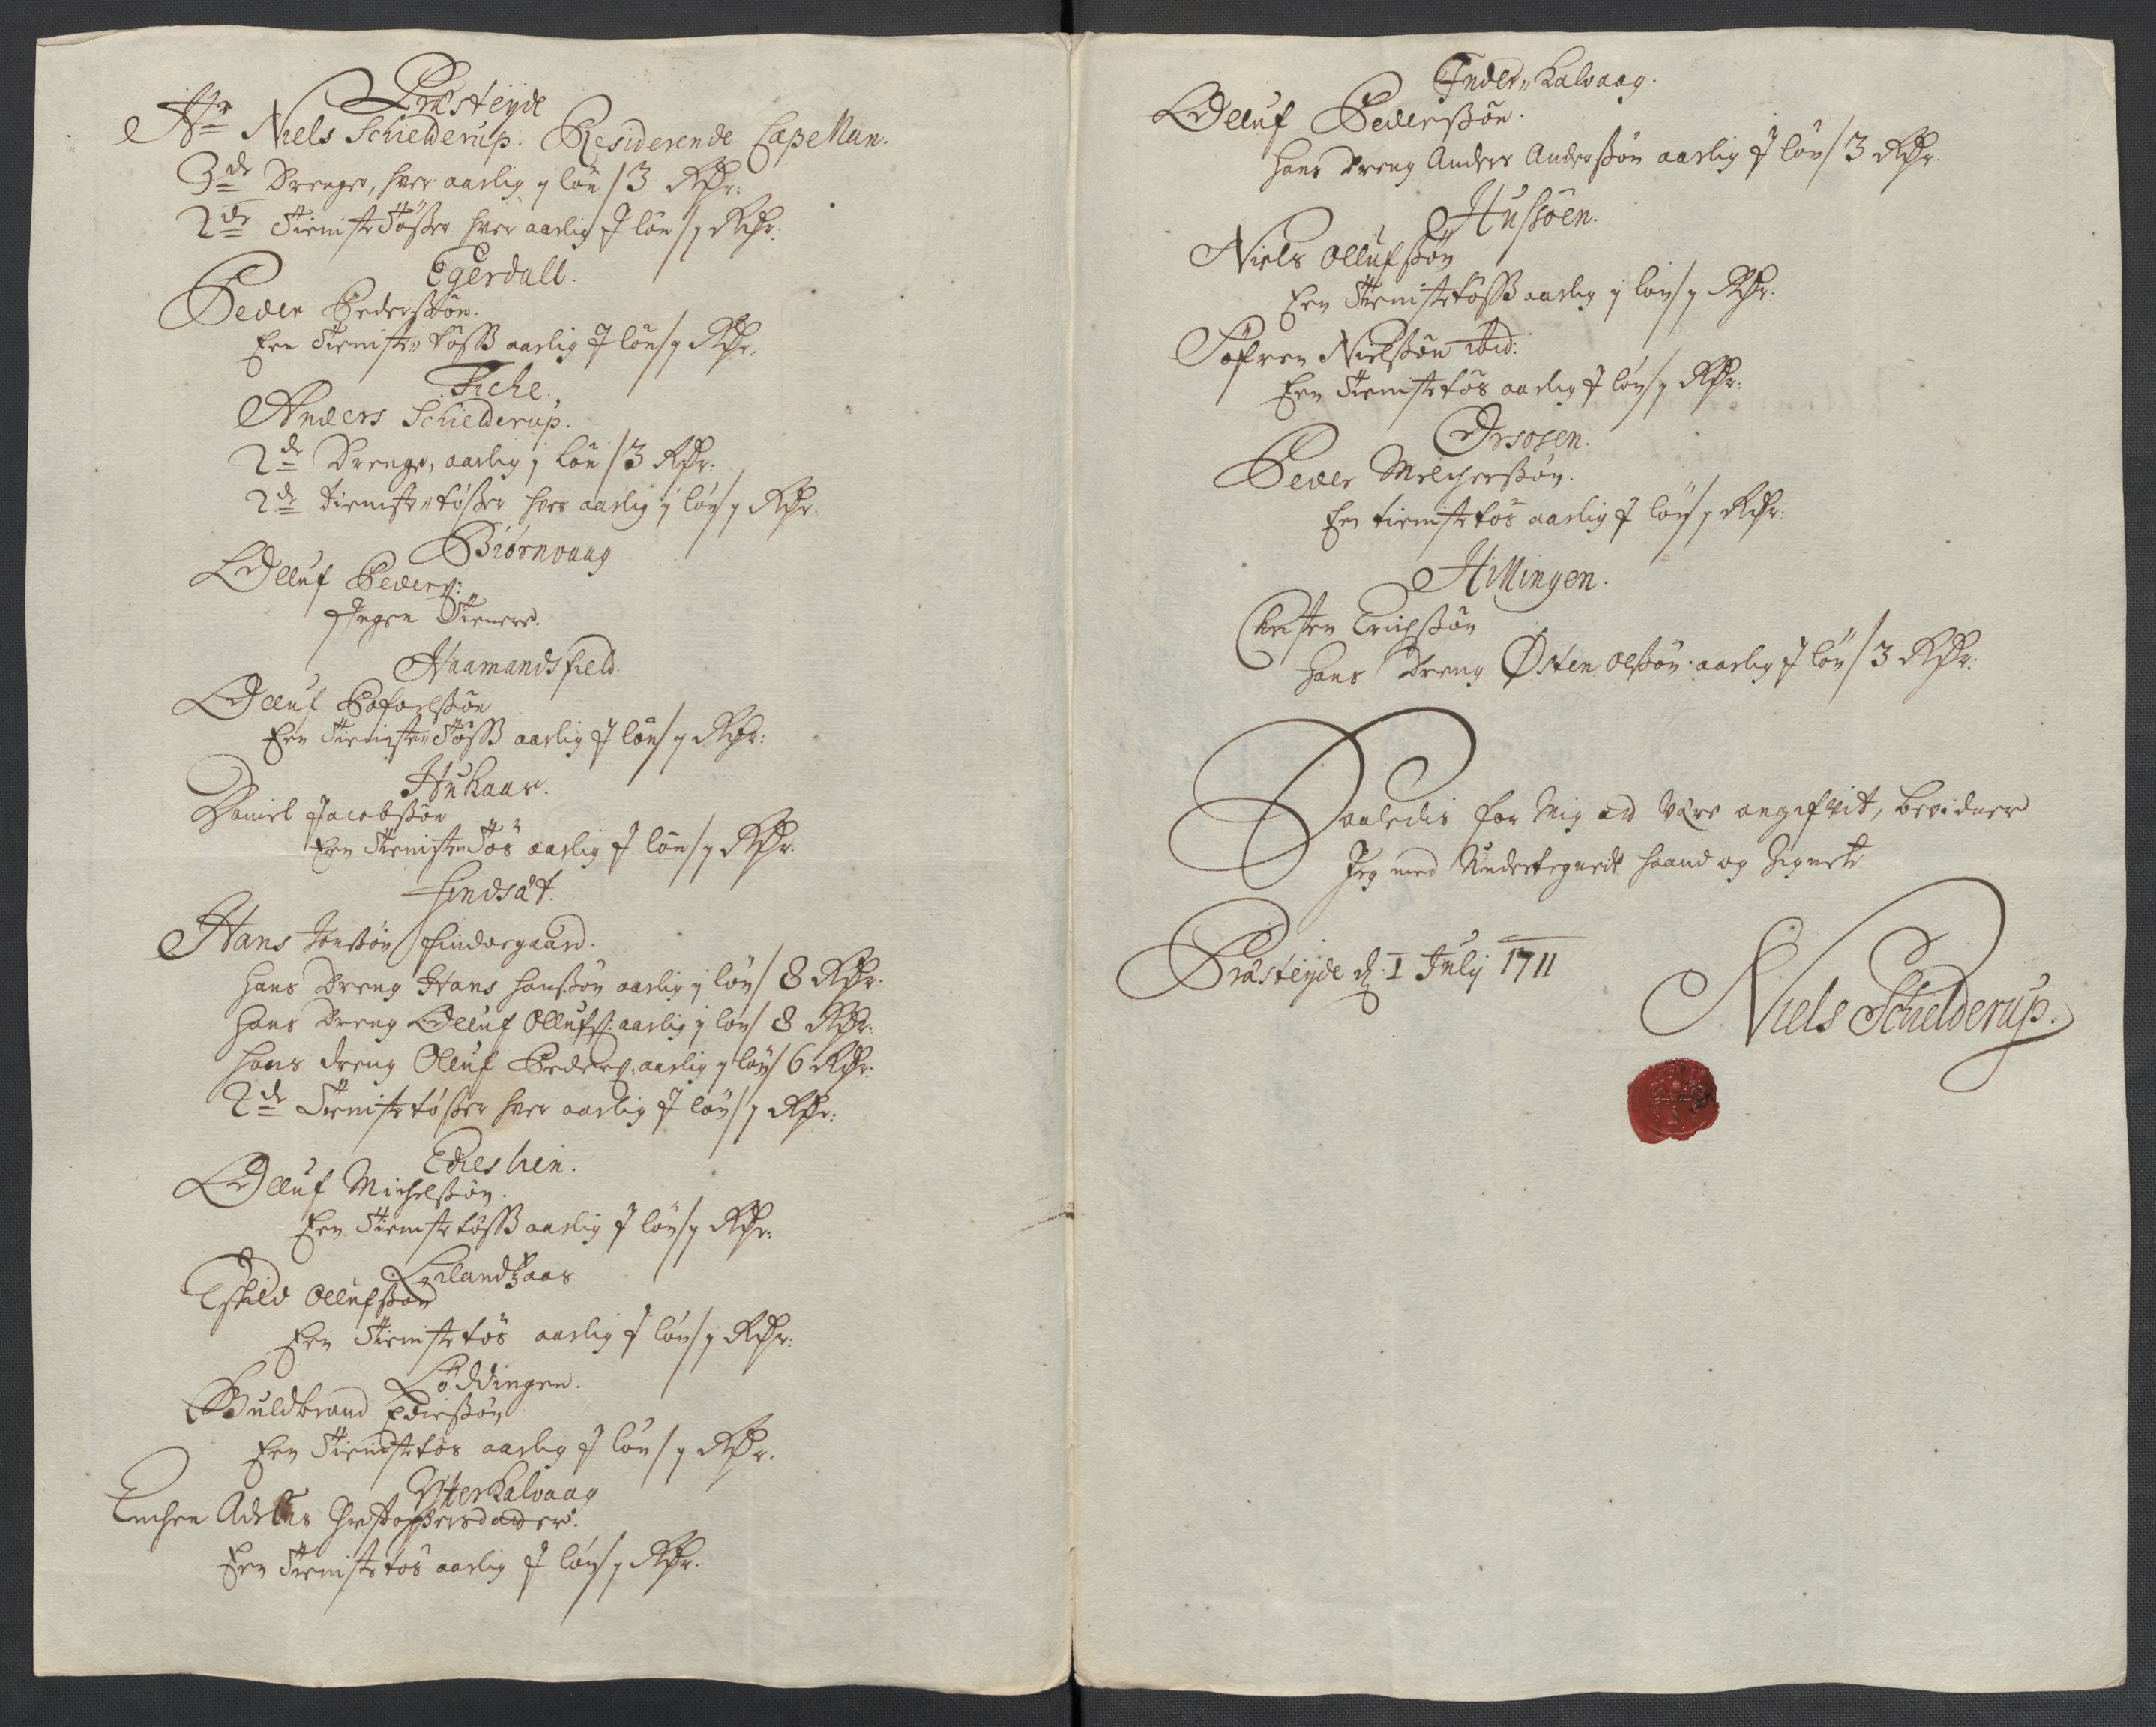 Præsteyde
Hr Niels Schielderup. Residerende Capellan.
3de Drenge, hver aarlig j løn / 3 Rdr:
2de Tieniste Tøsser hver aarlig J løn / 1 Rdr:
Egerdall.
Peder Pederssøn.
Een Tieniste tøss aarlig J løn / 1 Rdr.
Fiche.
Anders Schielderup.
2de Drenge, aarlig j løn / 3 Rdr:
2de tieniste tøsser hver aarlig j løn / 1 Rdr.
Biørnvaag
Olluf Peders:
Ingen Tienere.
Haamandsfield.
Olluf Pofvelssøn
Een Tieniste Tøss aarlig J løn / 1 Rdr:
Hukaar.
Daniel Jacobssøn
Een Tieniste Tøs aarlig J løn / 1 Rdr.
Hindsæt.
Hans Jenssøn Hindergaard.
Hans Dreng Hans Hanssøn aarlig j løn / 8 Rdr:
Hans Dreng Olluf Ollufs: aarlig j løn / 8 Rdr:
Hans dreng Olluf Peders: aarlig j løn / 6 Rdr:
2de Tieniste tøsser hver aarlig J løn / 1 Rdr:
Edieshen.
Olluf Michelssøn.
Een Tieniste tøss aarlig J løn / 1 Rdr:
Leilandhaas
Eskild Ollufssøn
Een Tieniste tøs aarlig J løn / 1 Rdr:
Løddingen.
Guldbrand Edissøn
Een Tieniste tøs aarlig J løn / 1 Rdr.
Ytterkalvaag
Enchen Adelus Christophersdaader.
Een Tieniste tøs aarlig J løn / 1 Rdr.
Inder Kalvaag.
Olluf Pederssøn.
Hans Dreng Anders Anderssøn aarlig J løn / 3 Rdr.
Hussøen.
Niels Ollufssøn
Een Tieniste tøss aarlig j løn / 1 Rdr.
Søfren Nielssøn ibid:
Een Tieniste tøs aarlig J løn / 1 Rdr:
Orsosen.
Peder Melcherssøn.
Een tieniste tøs aarlig J løn / 1 Rdr:
Hillingen.
Christen Erichssøn
Hans Dreng Østen Olssøn aarlig J løn / 3 Rdr:
Saaledis for Mig at være angifvit, bevidner
Jeg med Undertegnede haand og Signete
Præsteyde d: 1 July 1711
Niels Schielderup.